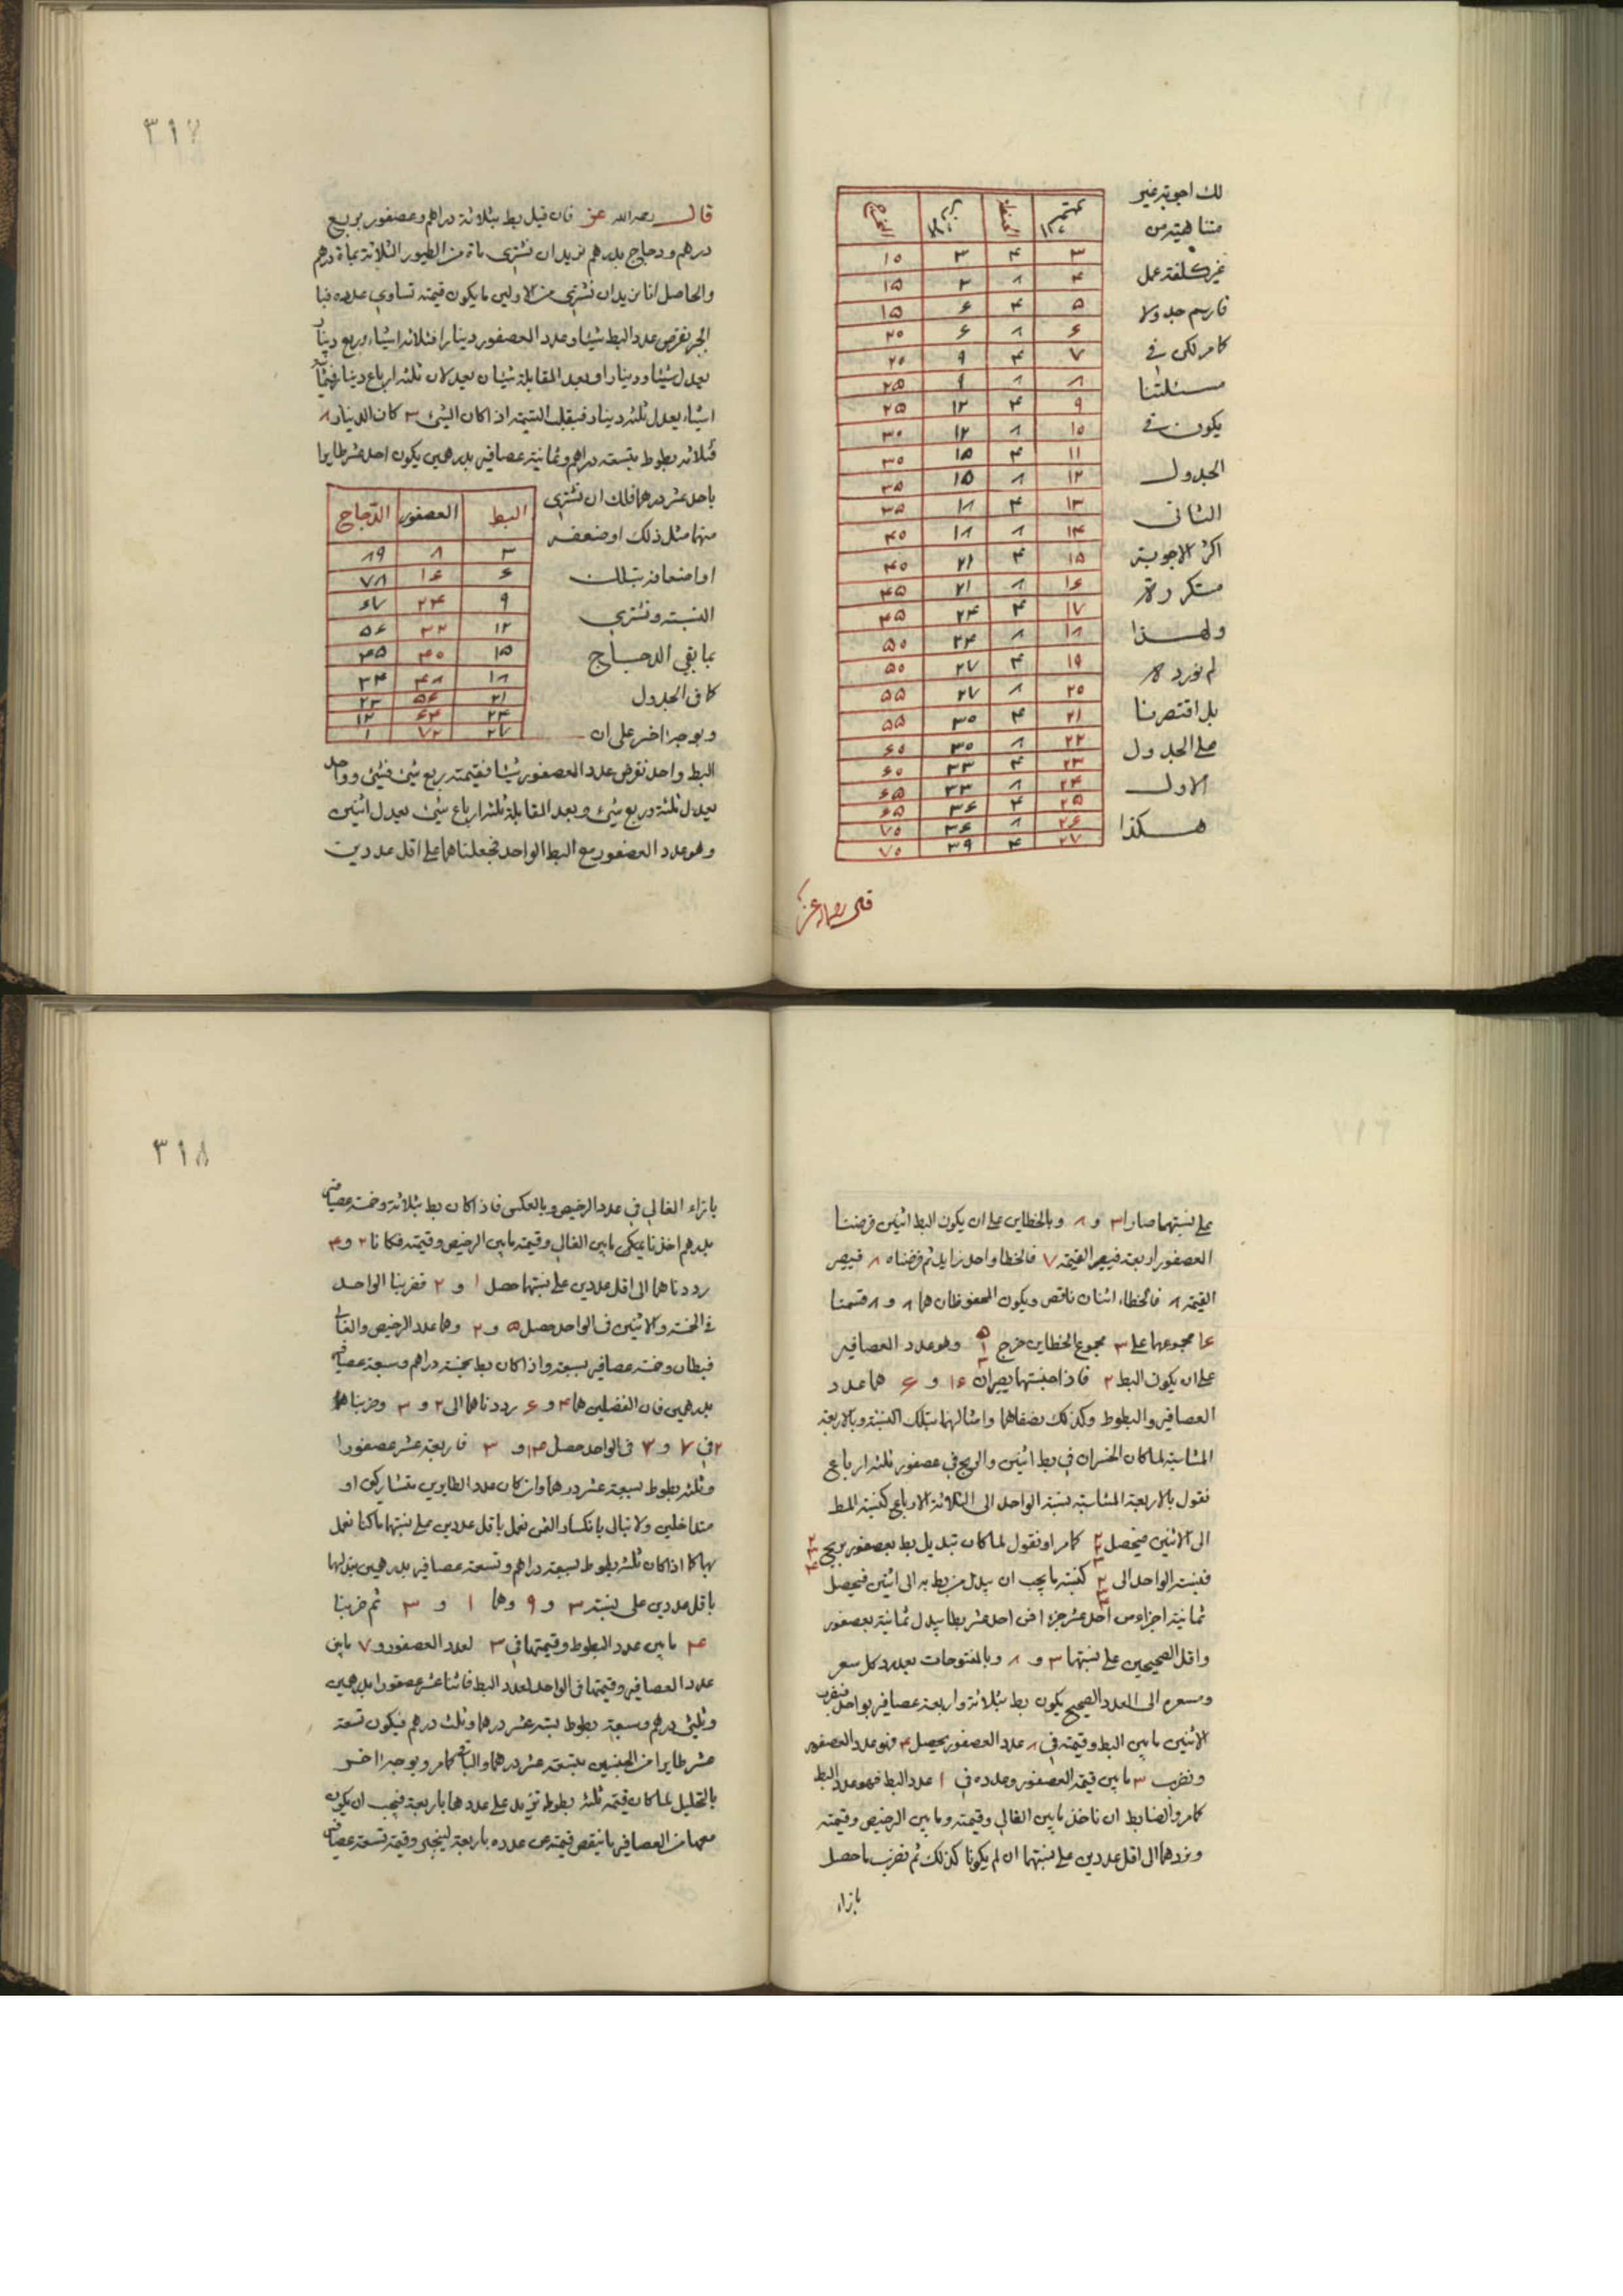 لك اجوبة غير
متناهية من
غير كلفة عمل
فارسم جدولا
كما مر لكن في
مسئلتنا
يكون في
الجدول
الثاني
اكثر الاجوبة
متكررة
ولهذا
لم نورده
بل اقتصرنا
على الجدول
الاول
هكذا
٣ ۴ ٣ ١٥
۴ ٨ ٣ ١٥
۵ ۴ ۶ ١۵
۶ ٨ ۶ ٢٠
٧ ۴ ٩ ٢٠
٨ ٨ ٩ ٢۵
٩ ۴ ١٢ ٢۵
١٠ ٨ ١٢ ٣٠
١١ ۴ ١۵ ٣٠
١٢ ٨ ١۵ ٣۵
١٣ ۴ ١٨ ٣۵
١۴ ٨ ١٨ ۴٠
١۵ ۴ ٢١ ۴٠
١۶ ٨ ٢١ ۴۵
١٧ ۴ ٢۴ ۴۵
١٨ ٨ ٢۴ ۵٠
١٩ ۴ ٢٧ ۵٠
٢٠ ٨ ٢٧ ۵۵
٢١ ۴ ٣٠ ۵۵
٢٢ ٨ ٣٠ ۶٠
٢٣ ۴ ٣٣ ۶٠
٢۴ ٨ ٣٣ ۶۵
٢۵ ۴ ٣۶ ۶۵
٢۶ ٨ ٣۶ ٧٠
٢٧ ۴ ٣٩ ٧٠
٣١٧
قال رحمه الله عز فان قيل بط بثلاثة دراهم وعصفور بربع
درهم ودجاج بدرهم نريد ان نشتري مأة من الطيور الثلاثة بمأة درهم
والحاصل انا نريد ان نشتري من الاولين ما يكون قيمته تساوي عدده فبا
الجبر نفرض عدد البط شيئا وعدد العصفور دينارا فثلاثة اشياء وربع دينار
يعدل شيئا ودينارا وبعد المقابلة شيئان يعدلان ثلثة ارباع دينار فثمانية
اشياء يعدل ثلثة دينار فبقلب التسمية اذا كان الشئ ٣ كان الدينار ٨
فثلاثة بطوط بتسعة دراهم وثمانية عصافير بدرهمين يكون احد عشر طايرا
باحد عشر درهما فلك ان تشتري
منها مثل ذلك او ضعفه
او اضعافه بتلك
النسبة وتشتري
بما بقي الدجاج
كما في الجدول
وبوجه اخر على ان
البط العصفور الدجاج
٣ ٨ ٨٩
۶ ١۶ ٧٨
٩ ٢۴ ۶٧
١٢ ٣٢ ۵۶
١۵ ۴٠ ۴۵
١٨ ۴٨ ٣۴
٢١ ۵۶ ٢٣
٢۴ ۶۴ ١٢
٢٧ ٧٢ ١
البط واحد نفرض عدد العصفور شيئا فقيمته ربع شئ فشئ وواحد
يعدل ثلثة وربع شئ وبعد المقابلة ثلثة ارباع شئ يعدل اثنين
وهو عدد العصفور مع البط الواحد فجعلناهما على اقل عددين
على نسبتهما صارا ٣ و ٨ وبالخطاين على ان يكون البط اثنين فرضنا
العصفور اربعة فيصير القيمة ٧ فالخطا واحد زايد ثم فرضناه ٨ فيصير
القيمة ٨ فالخطاء اثنان ناقص ويكون المحفوظان هما ٨ و ٨ قسمنا
١۶ مجموعهما على ٣ مجموع الخطاين خرج ۵ ١ ٣ وهو عدد العصافير
على ان يكون البط ٢ فاذا جنستهما يصيران ١۶ و ۶ هما عدد
العصافير والبطوط وكذلك نصفاهما وامثالهما بتلك النسبة وبالاربعة
المتناسبة لما كان الخسران في بط اثنين والربح في عصفور ثلثة ارباع
نقول بالاربعة المتناسبة نسبة الواحد الى الثلاثة الارباع كنسبة المط
الى الاثنين فيحصل كما مر او نقول لما كان تبديل بط بعصفور يربح
فنسبة الواحد الى كنسبة ما يجب ان يبدل من بط به الى اثنين فيحصل
ثمانية اجزاء من احد عشر جزء ا فمن احد عشر بطا يبدل ثمانية بعصفور
واقل الصحيحين على نسبتهما ٣ و ٨ وبالمفتوحات بعدد كل سعر
ومسعره الى العدد الصحيح يكون بط بثلاثة واربعة عصافير بواحد فنضرب
الاثنين ما بين البط وقيمته في عدد العصفور يحصل ٨ فهو عدد العصفور
ونضرب ٣ ما بين قيمة العصفور وعدده في ١ عدد البط فهو عدد البط
كما مر والضابط ان ناخذ ما بين الغالي وقيمته وما بين الرخيص وقيمته
ونردهما الى اقل عددين على نسبتهما ان لم يكونا كذلك ثم نضرب ما حصل
بازاء
٣١٨
بازاء الغالي في عدد الرخيص وبالعكس فاذا كان بط بثلاثة وخمسة عصافير
بدرهم اخذنا ما بين الغالي وقيمته ما بين الرخيص وقيمته فكانا ٢ و ۴
رددناهما الى اقل عددين على نسبتهما حصل ١ و ٢ فضربنا الواحد
في الخمسة والاثنين في الواحد حصل ۵ و ٢ وهما عدد الرخيص والغالي
فبطان وخمسة عصافير بسبعة واذا كان بط بخمسة دراهم وسبعة عصافير
بدرهمين فان الفضلين هما ۴ و ۵ رددناهما الى ٢ و ٣ وضربناهما
٢ في ٧ و ٣ في الواحد حصل ١۴ و ٣ فاربعة عشر عصفورا
وثلثة بطوط بسبعة عشر درهما وان كان عدد الطايرين متشاركين او
متداخلين ولا نبالي بانكسار الثمن نعمل باقل عددين على نسبتهما ما كنا نعمل
بهما كما اذا كان ثلثة بطوط بسبعة دراهم وتسعة عصافير بدرهمين نبدلهما
باقل عددين على نسبة ٣ و ٩ وهما ١ و ٣ ثم ضربنا
۴ ما بين عدد البطوط وقيمتها في ٣ لعدد العصفور و ٧ ما بين
عدد العصافير وقيمتها في الواحد لعدد البط فاثنا عشر عصفورا بدرهمين
وثلثي درهم وسبعة بطوط بستة عشر درهما وثلث درهم فيكون تسعة
عشر طايرا من الجنسين بتسعة عشر درهما والباقي كما مر وبوجه اخر
بالتحليل لما كان قيمة ثلثة بطوط تزيد على عددها باربعة فيجب ان يكون
معها من العصافير ما ينقص قيمته عن عدده باربعة لينجبر وقيمة تسعة عصافير